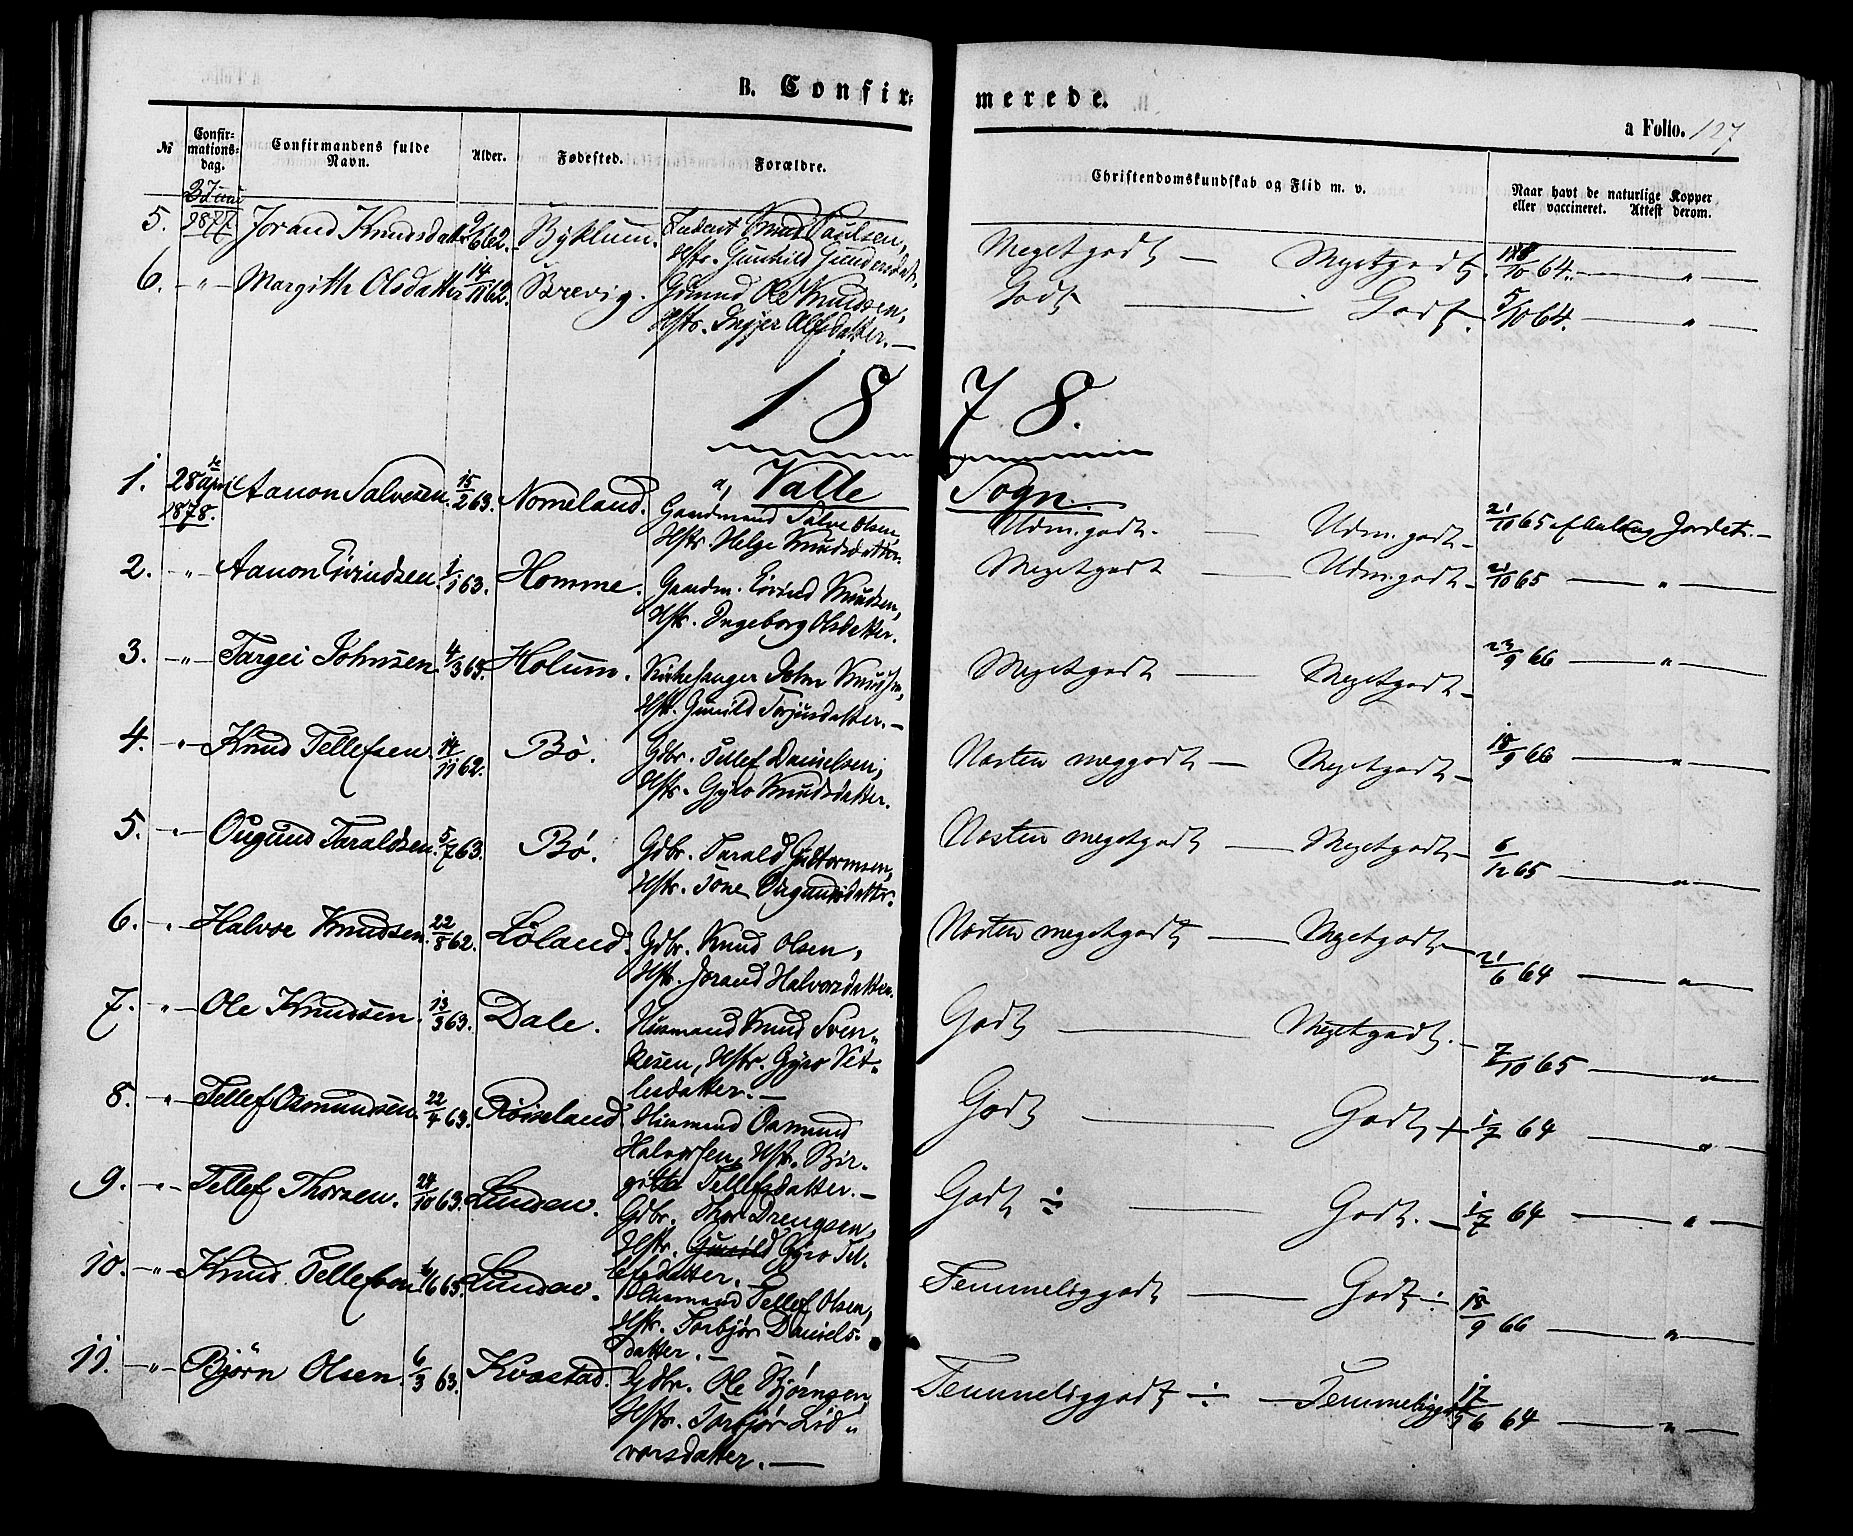 B. Confir-
merede.
a Folio. 127
№ Confir-
mations-
dag. Confirmandens fulde
Navn. Alder. Fødested. Forældre.
Christendomskundskab og Flid m. v. Naar havt de naturlige Kopper
eller vaccineret. Attest derom.
5. 1877 Jorand Knudsdatter 9/6 62. Byklum. Knud Paulsen, Meget godt — Meget godt. 18/10 64. — „ —
Hstr. Gunhild Gundersdatr.
6. — „ — Margith Olsdatter 14/11 62. Brevig. Gmnd Ole Knudsen, Godt — Godt. 5/10 64. — „ —
Hstr. Ingjer Alfsdatter. —
1878.
a, Valle Sogn.
1. 28de April Aanon Salvesen. 15/2 63. Nomeland. Gaardmand Salve Olsen, Udm. godt. — Udm. godt — 21/10 65 af Aulaug Jordet. —
1878. Hstr. Helge Knudsdatter.
2. — „ — Aanon Eivindsen. 1/1 63. Homme. Gaardm. Eivind Knudsen, Meget godt — Udm. godt — 21/10 65 — „ —
Hstr. Ingeborg Olsdatter.
3. — „ — Targei Johnsen 4/3 63. Holum. Kirkesanger John Knudsen, Meget godt — Meget godt — 23/9 66 — „ —
Hstr. Gunild Torjusdatter. —
4. — „ — Knud Tellefsen. 14/11 62. Bø. Gdbr. Tellef Danielsen, Næsten meg godt — Meget godt — 18/9 66 — „ —
Hstr. Gyro Knudsdatter.
5. — „ — Ougund Taraldsen. 5/7 63. Bø. Gdbr. Tarald Guttormsen, Næsten meget godt — Meget godt — 6/12 65 — „ —
Hstr. Tone Ougundsdatter.
6. — „ — Halvor Knudsen. 22/8 62. Løland. Gdbr. Knud Olsen, Næsten meget godt — Meget godt — 21/6 64 — „ —
Hstr. Jorand Halvorsdatter.
7. — „ — Ole Knudsen. 13/3 63. Dale. Husmand Knud Sven- Godt — Meget godt. — 7/10 65 — „ —
kesen, Hstr. Gyro Vet-
lesdatter. —
8. — „ — Tellef Osmundsen. 22/4 63. Røiseland. Husmand Osmund Godt — Godt + 1/7 64 — „ —
Halvorsen, Hstr. Bir-
gitte Tellefsdatter. —
9. — „ — Tellef Thorsen. 24/10 63. Lunden. Gdbr. Thor Drengsen, Godt ÷ — Godt. — 1/7 64 — „ —
Hstr. Gunild Gyro Tel-
lefsdatter. —
10. — „ — Knud Tellefsen 63. Lunden. Husmand Tellef Olsen, Temmelig godt — Godt ÷ 18/9 66 — „ —
Hstr. Torbjør Daniels-
datter. —
11. — „ — Bjørn Olsen. 6/3 63. Kvæstad. Gdbr. Ole Bjørnsen, Temmelig godt ÷ — Temmelig godt 17/6 64 — „ —
Hstr. Torbjør Lid-
vorsdatter. —